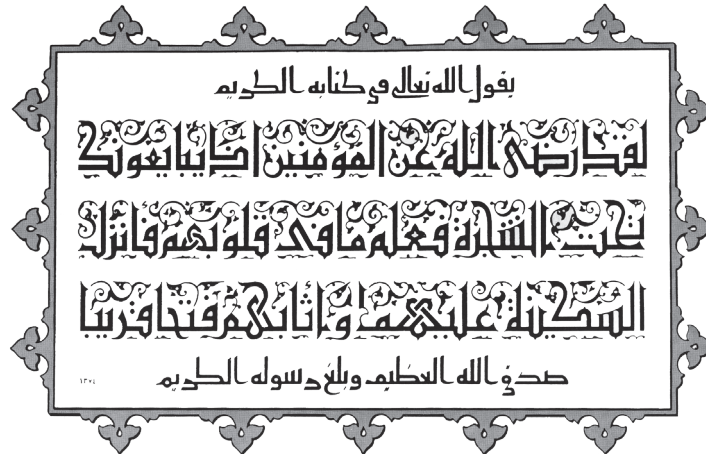 يقول الله تعالى في كتابه الكريم
لقد رضي الله عن المؤمنين إذ يبايعونك
تحت الشجرة فعلم ما في قلوبهم فأنزل
السكينة عليهم وأثابهم فتحا قريبا
صدق الله العظيم وبلغ رسوله الكريم
١٣٧٤